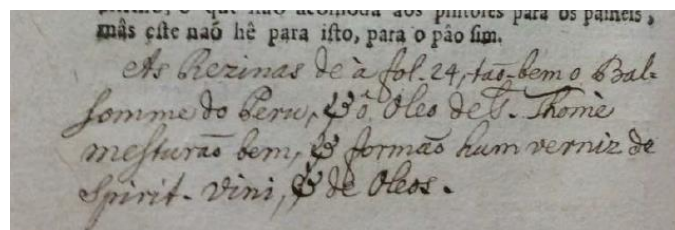 pintôres, o que não acomóda aos pintores para os paineis,
mâs éste naõ hê para isto, para o pâo sim.
As Rezinas de à fol. 24, taõ-bem o Bal-
somme do Peru, & ô Oleo de S. Thomè
mesturaõ bem, & formaõ hum verniz de
Spirit. Vini, & de Oleos.